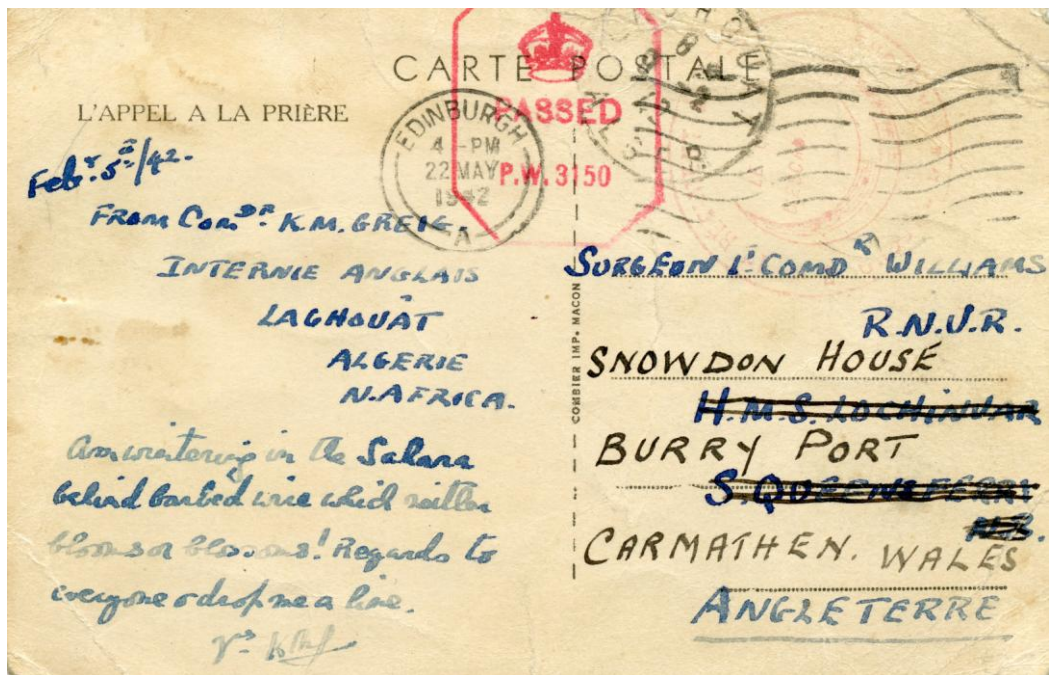 CARTE POSTALE
L'APPEL A LA PRIÈRE
PASSED
P.W. 3150
EDINBURGH
4 - PM
22 MAY
1942
A
LAGHOUAT
Feby. 5th/42.
FROM COMDR K.M. GREIG.
INTERNIE ANGLAIS
LAGHOUÂT
ALGERIE
N. AFRICA.
Am wintering in the Sahara
behind barbed wire which neither
blooms or blossoms! Regards to
everyone & drop me a line.
COMBIER IMP. MACON
SURGEON Lt. COMDR WILLIAMS
R.N.V.R.
SNOWDON HOUSE
H.M.S. LOCHINVAR
BURRY PORT
S. QUEENSFERRY
N.B.
CARMATHEN. WALES
ANGLETERRE